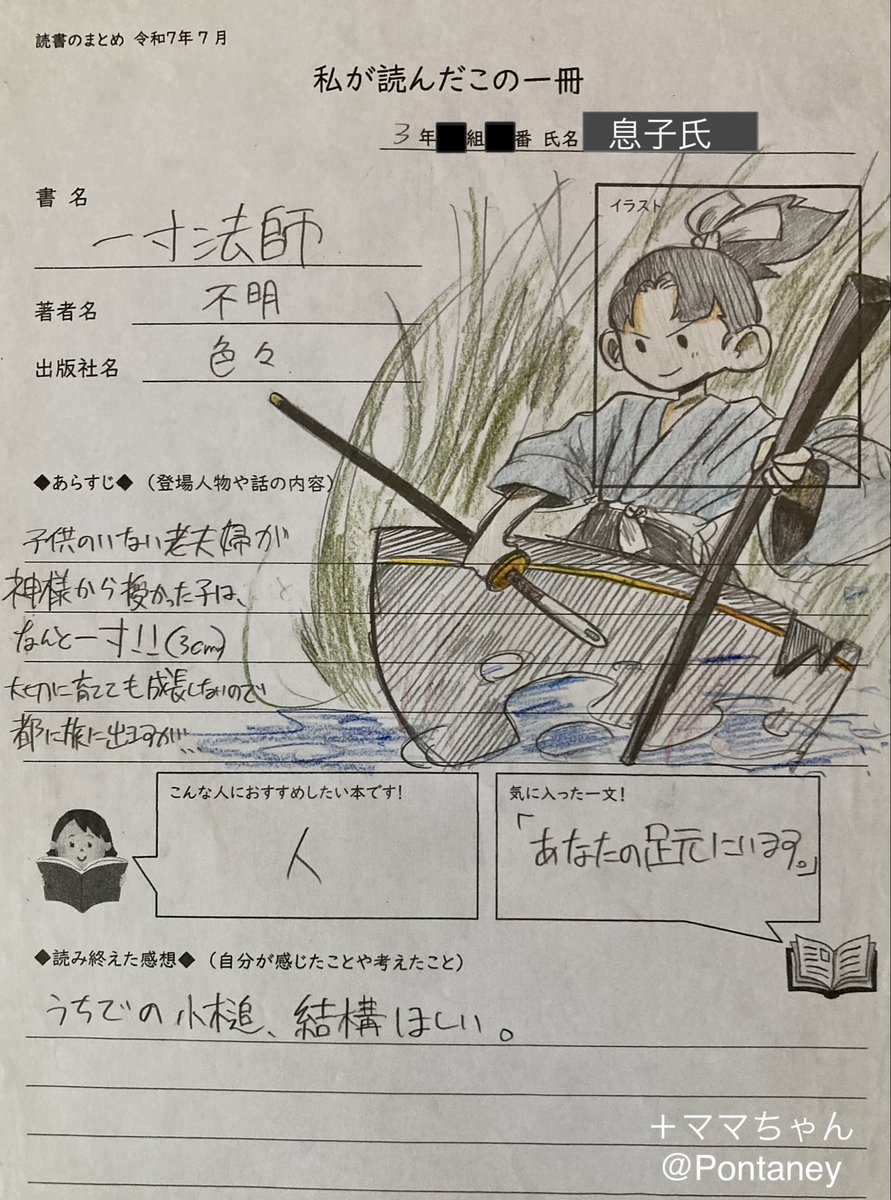 読書のまとめ 令和7年7月
私が読んだこの一冊
3年 組 番 氏名 息子氏
書名
一寸法師
著者名
不明
出版社名
色々
イラスト
◆あらすじ◆(登場人物や話の内容)
子供のいない老夫婦が
神様から授かった子は、
なんと一寸!!(3cm)
大切に育てても成長しないので
都に旅に出ますが…
こんな人におすすめしたい本です!
人
気に入った一文!
「あなたの足元にいます。」
◆読み終えた感想◆(自分が感じたことや考えたこと)
うちでの小槌、結構ほしい。
+ママちゃん
@Pontaney